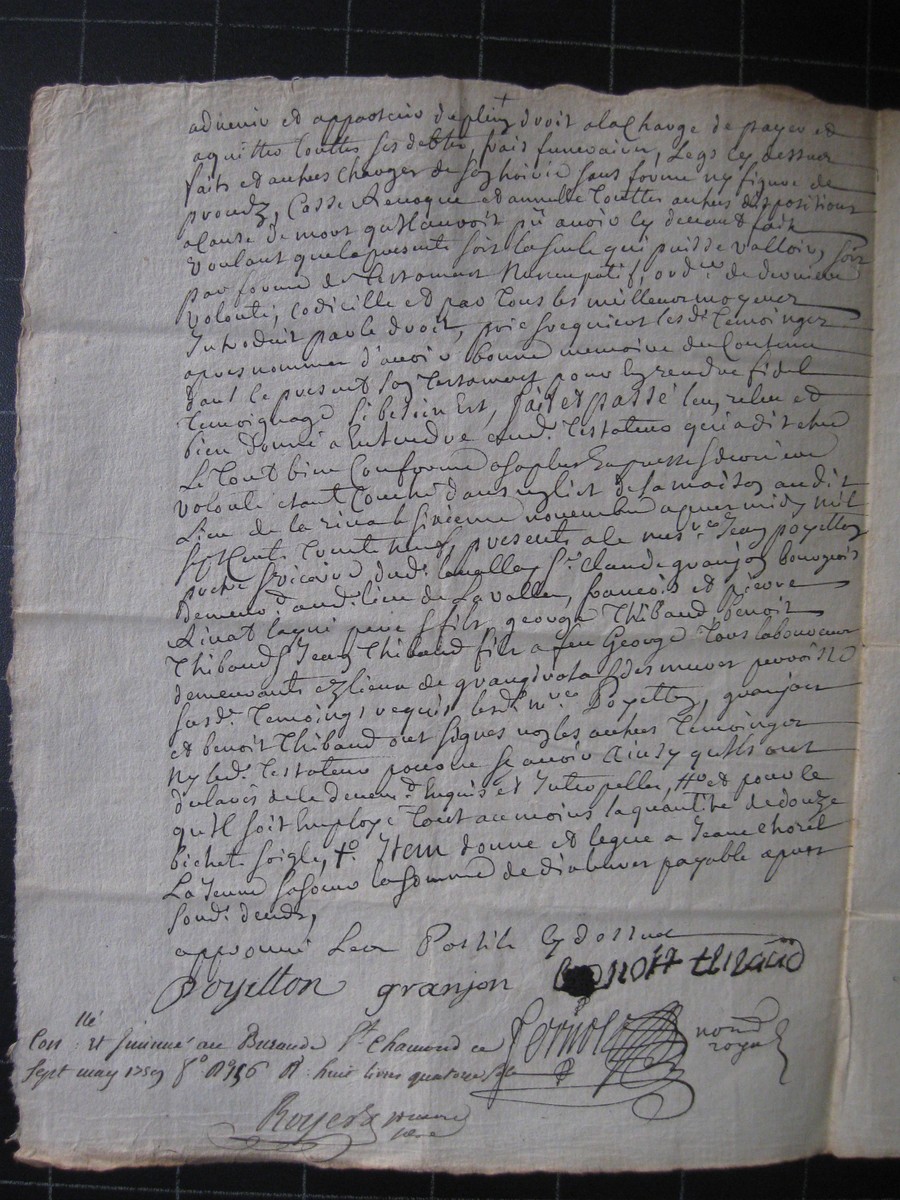 advenir et appartenir de plein droit a la Charge de payer et
aquitter touttes ses debtes, frais funeraires, Legs cy dessus
faits et autres Charges de son hoirie sans forme ny figure de
procedz, Casse Revoque et annulle touttes autres dispositions
a cause de mort qu'il auroit pü avoir cy devant fait
voulant que la presente soit la seule qui puisse valloir, soit
par forme de testament Nuncupatif, ord.re de derniere
volonté, Codicille et par tous les meilleurs moyens
Introduit par le droit, prie requiert lesd. temoings
apres nommes d'avoir bonne memoire du Contenu
dans le present son testament pour en rendre fidel
temoignage si besoin Est, fait et passé leu, releu et
bien donné a Entendre aud. testateur qui a dit etre
Le tout bien Conforme a sa plus Expresse derniere
volonté etant Couché dans un lict de sa maison audit
Lieu de la rina le sixieme novembre apres midy mil
sept Cents trente neuf, presents a ce mes.re Jean poyetton
pretre vicaire dud. lavalla, S.r Claude granjon bourgeois
demeur.t aud. lieu de Lavalla, francois et pierre
Rivat pere et fils, george Thibaud, benoit
Thibaud, Jean Thibaud fils a feu George tous laboureurs
demeurants ez lieux de
susd. temoings requis lesd. m.re Poyetton, granjon
et benoit Thibaud ont signes non les autres temoings
ny led. testateur pour ne sçavoir ainsy qu'ils ont
declarés de ce deuem.t Enquis et Interpellés, et pour le
qu'il soit Employé tout au moins la quantité de douze
bichets soigle, Item donne et legue a Jeanne Chorel
La Jeune sa soeur la somme de dix livres payable apres
sond. deceds,
approuvé Les Postils cy dessus
Poyetton granjon benoit thibaud
Con.llé et Insinué au Bureau de S.t Chamond ce
Sept may 1759 f.o R: huit livres quatorze sols
notre
royal
Royer